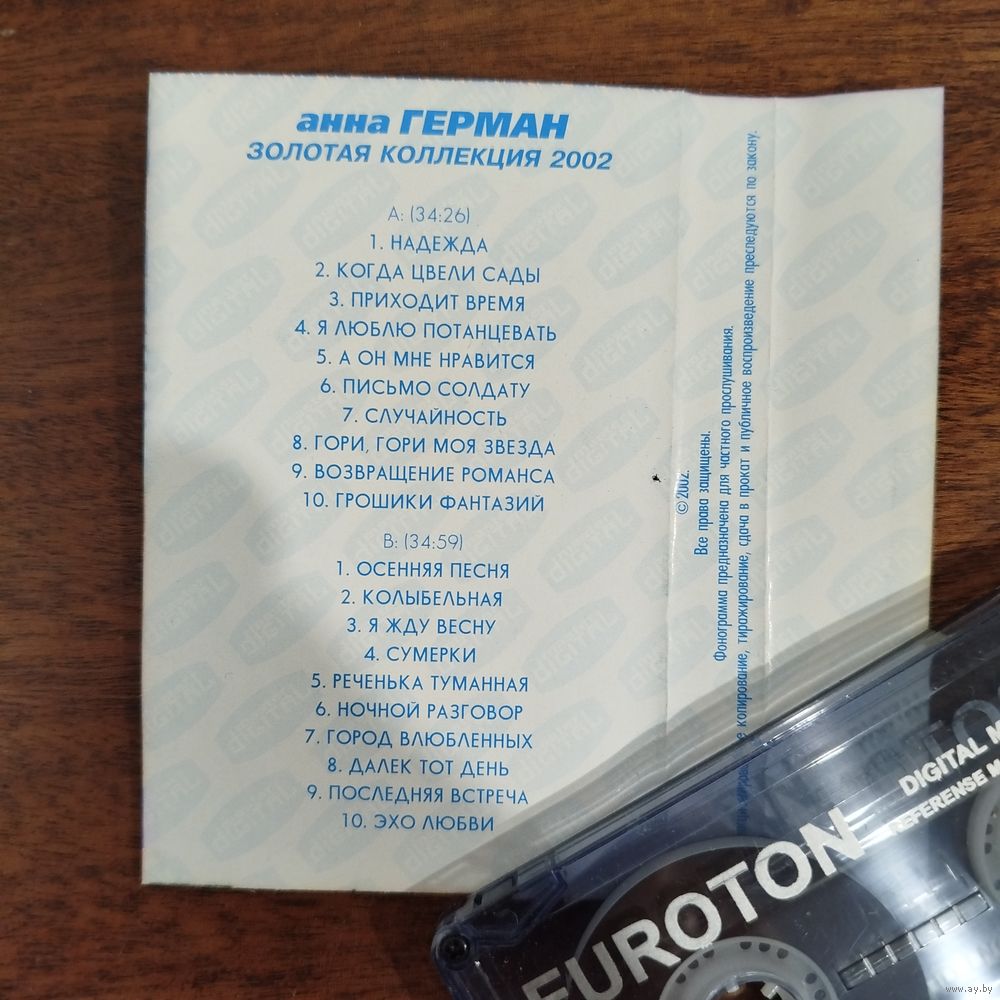 анна ГЕРМАН
ЗОЛОТАЯ КОЛЛЕКЦИЯ 2002
А: (34:26)
1. НАДЕЖДА
2. КОГДА ЦВЕЛИ САДЫ
3. ПРИХОДИТ ВРЕМЯ
4. Я ЛЮБЛЮ ПОТАНЦЕВАТЬ
5. А ОН МНЕ НРАВИТСЯ
6. ПИСЬМО СОЛДАТУ
7. СЛУЧАЙНОСТЬ
8. ГОРИ, ГОРИ МОЯ ЗВЕЗДА
9. ВОЗВРАЩЕНИЕ РОМАНСА
10. ГРОШИКИ ФАНТАЗИЙ
В: (34:59)
1. ОСЕННЯЯ ПЕСНЯ
2. КОЛЫБЕЛЬНАЯ
3. Я ЖДУ ВЕСНУ
4. СУМЕРКИ
5. РЕЧЕНЬКА ТУМАННАЯ
6. НОЧНОЙ РАЗГОВОР
7. ГОРОД ВЛЮБЛЕННЫХ
8. ДАЛЕК ТОТ ДЕНЬ
9. ПОСЛЕДНЯЯ ВСТРЕЧА
10. ЭХО ЛЮБВИ
© 2002.
Все права защищены.
Фонограмма предназначена для частного прослушивания.
копирование, тиражирование, сдача в прокат и публичное воспроизведение преследуются по закону.
EUROTON
DIGITAL
REFERENSE
www.ay.by